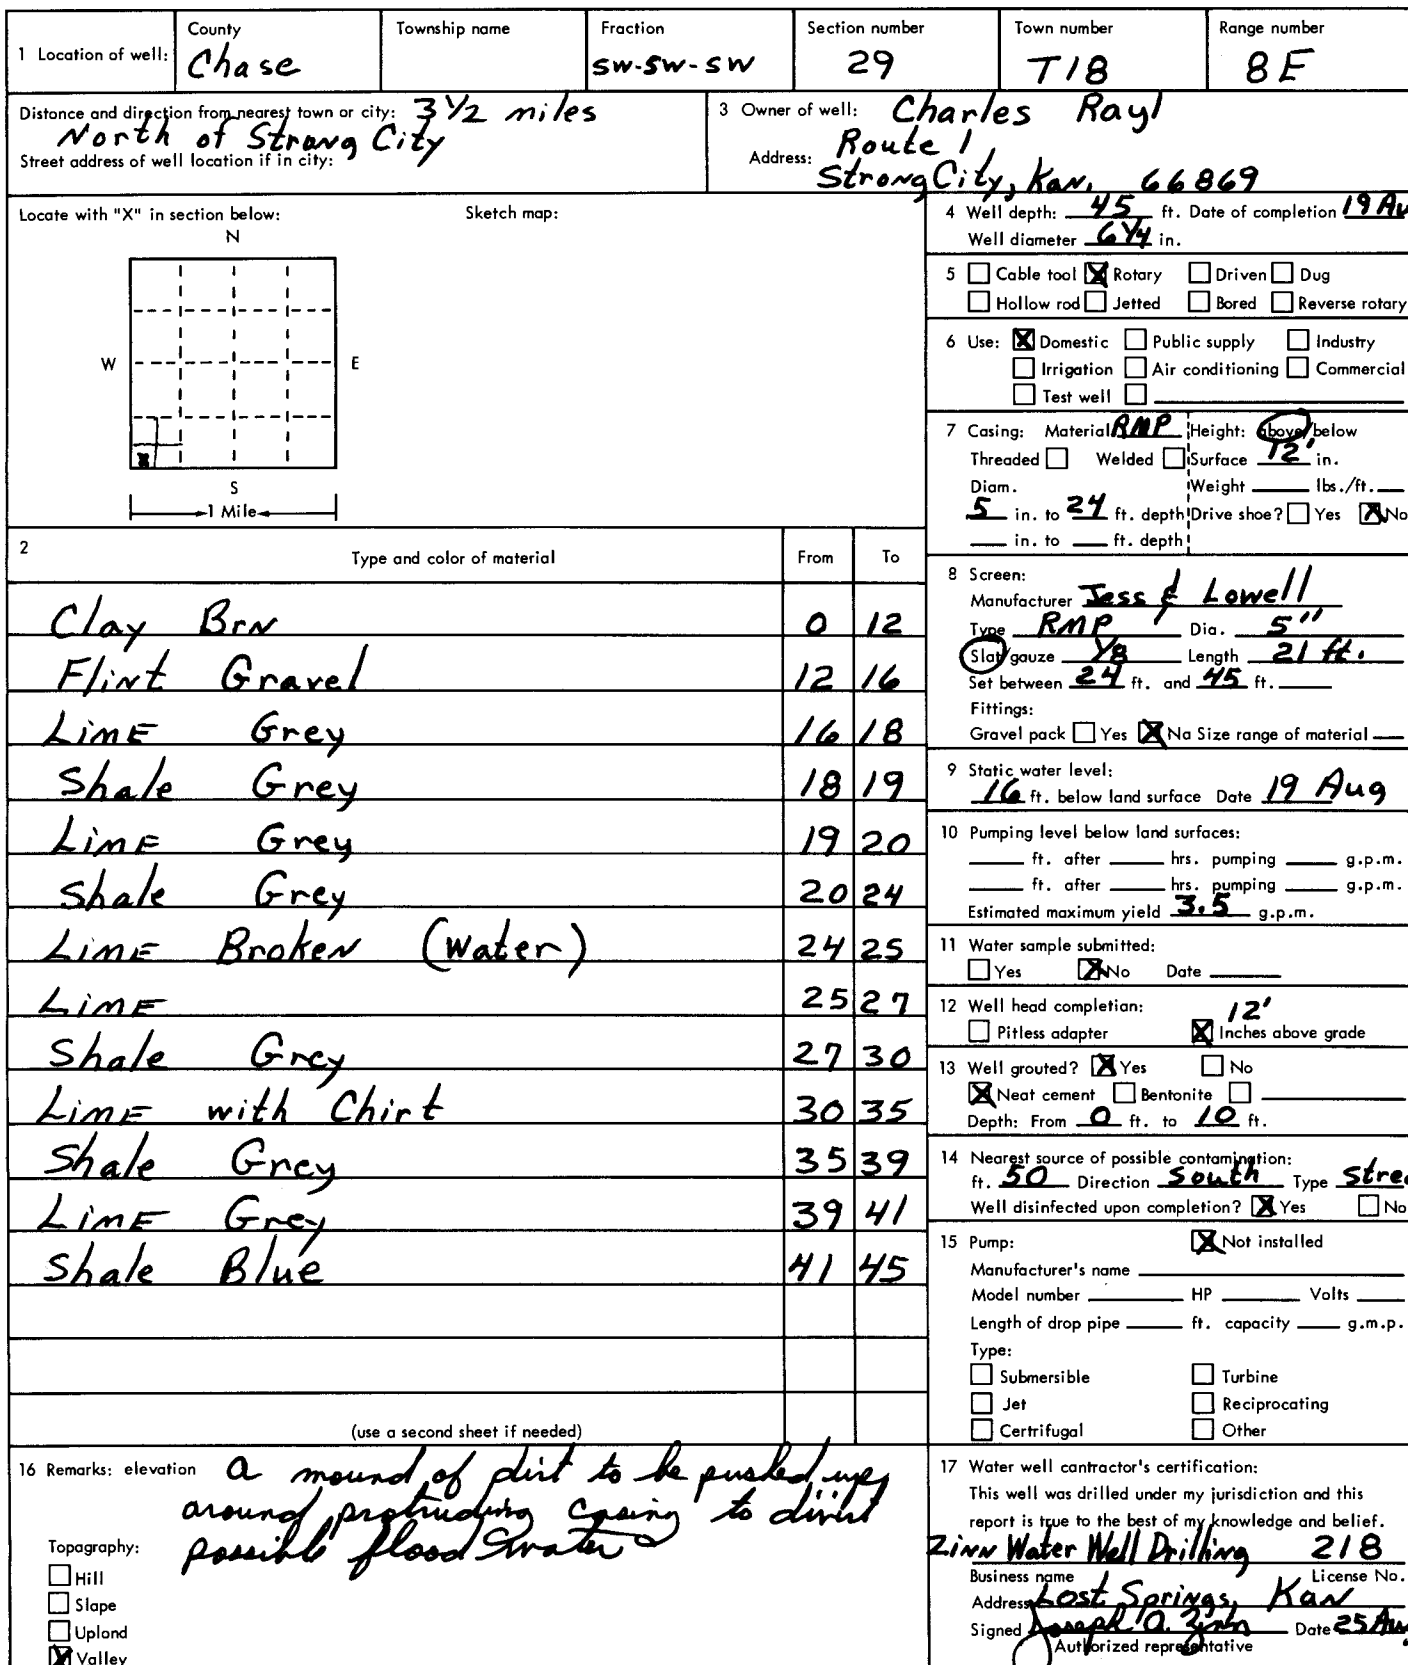 County Township name Fraction Section number Town number Range number
1 Location of well: Chase SW-SW-SW 29 T18 8E
Distance and direction from nearest town or city: 3 1/2 miles
North of Strong City
Street address of well location if in city:
3 Owner of well: Charles Rayl
Route 1,
Address: Strong City, Kan. 66869
Locate with "X" in section below: Sketch map:
N
W E
X
S
1 Mile
2 Type and color of material From To
Clay Brn 0 12
Flint Gravel 12 16
Lime Grey 16 18
Shale Grey 18 19
Lime Grey 19 20
Shale Grey 20 24
Lime Broken (Water) 24 25
Lime 25 27
Shale Grey 27 30
Lime with Chirt 30 35
Shale Grey 35 39
Lime Grey 39 41
Shale Blue 41 45
(use a second sheet if needed)
4 Well depth: 45 ft. Date of completion 19 Au
Well diameter 6 1/4 in.
5 Cable tool X Rotary Driven Dug
Hollow rod Jetted Bored Reverse rotary
6 Use: X Domestic Public supply Industry
Irrigation Air conditioning Commercial
Test well
7 Casing: Material RMP Height: above/below
Threaded Welded Surface 12' in.
Diam. Weight lbs./ft.
5 in. to 24 ft. depth Drive shoe? Yes X No
in. to ft. depth
8 Screen:
Manufacturer Jess & Lowell
Type RMP Dia. 5"
Slat/gauze 1/8 Length 21 ft.
Set between 24 ft. and 45 ft.
Fittings:
Gravel pack Yes X Na Size range of material
9 Static water level:
16 ft. below land surface Date 19 Aug
10 Pumping level below land surfaces:
ft. after hrs. pumping g.p.m.
ft. after hrs. pumping g.p.m.
Estimated maximum yield 3.5 g.p.m.
11 Water sample submitted:
Yes X No Date
12 Well head completion: 12'
Pitless adapter X Inches above grade
13 Well grouted? X Yes No
X Neat cement Bentonite
Depth: From 0 ft. to 10 ft.
14 Nearest source of possible contamination:
ft. 50 Direction South Type Stree
Well disinfected upon completion? X Yes No
15 Pump: X Not installed
Manufacturer's name
Model number HP Volts
Length of drop pipe ft. capacity g.m.p.
Type:
Submersible Turbine
Jet Reciprocating
Certrifugal Other
16 Remarks: elevation a mound of dirt to be pushed up
around protruding casing to divirt
possible flood water
Topagraphy:
Hill
Slape
Uplond
X Valley
17 Water well cantractor's certification:
This well was drilled under my jurisdiction and this
report is true to the best of my knowledge and belief.
Zinn Water Well Drilling 218
Business name License No.
Address Lost Springs, Kan
Signed Joseph A. Zinn Date 25 Aug
Authorized representative